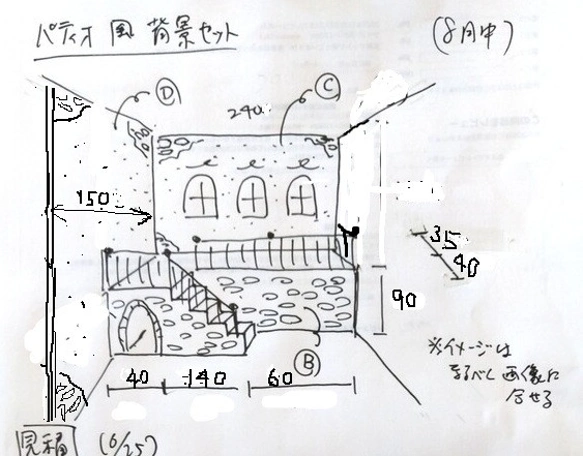 パティオ風 背景セット
(8月中)
D
C
240
150
35
40
90
※イメージは
なるべく画像に
合せる
B
40
140
60
見積 (6/25)